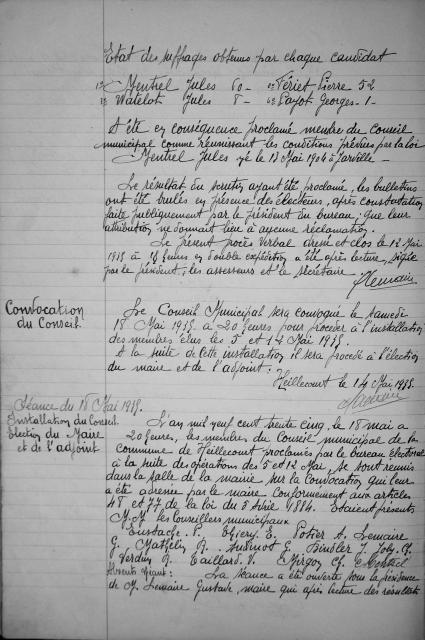 Etat des suffrages obtenus par chaque candidat
1º Mentrel Jules 60 - 2º Fériet Pierre 52
3º Watelot Jules 8 - 4º Payot Georges - 1 -
A été en conséquence proclamé membre du Conseil
municipal comme réunissant les conditions prévues par la loi
Mentrel Jules né le 13 Mai 1904 à Jarville -
Le résultat du scrutin ayant été proclamé, les bulletins
ont été brulés en présence des électeurs, après constatation
faite publiquement par le président du bureau, que leur
attribution ne donnait lieu à aucune réclamation.
Le présent procès verbal dressé et clos le 12 Mai
1935 à 18 heures en double expédition a été après lecture, signé
par le président, les assesseurs et le secrétaire.
GLemaire
Convocation
du Conseil
Le Conseil Municipal sera convoqué le samedi
18 Mai 1935 à 20 heures pour procéder à l'installation
des membres élus les 5 et 14 Mai 1935.
A la suite de cette installation il sera procédé à l'élection
du maire et de l'adjoint.
Heillecourt le 14 Mai 1935.
Séance du 18 Mai 1935.
Installation du Conseil
Election du Maire
et de l'adjoint
L'an mil neuf cent trente cinq, le 18 mai à
20 heures, les membres du Conseil municipal de la
commune de Heillecourt proclamés par le bureau électoral
à la suite des opérations des 5 et 12 Mai, se sont réunis
dans la salle de la mairie sur la convocation qui leur
a été adressée par le maire conformément aux articles
48 et 77 de la loi du 5 Avril 1884. Etaient présents
M.M. les Conseillers municipaux
Eustache P. Thiery E. Potier A. Lemaire
G. Mathelin Audinot G.
Verdun Gaillard V. Mirgon Ch. Mentrel
Absents étant : La séance a été ouverte sous la présidence
de M. Lemaire Gustave, maire qui après lecture des résultats